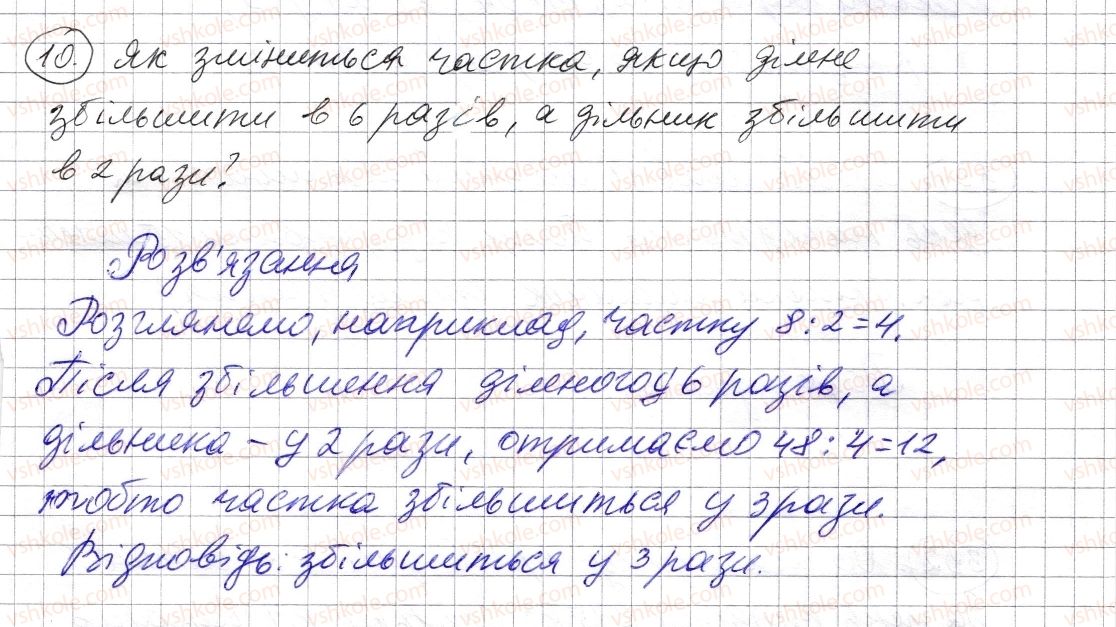 10. Як зміниться частка, якщо ділене
збільшити в 6 разів, а дільник збільшити
в 2 рази?
Розв'язання
Розглянемо, наприклад, частку 8:2=4.
Після збільшення діленого у 6 разів, а
дільника – у 2 рази, отримаємо 48:4=12,
тобто частка збільшиться у 3 рази.
Відповідь: збільшиться у 3 рази.